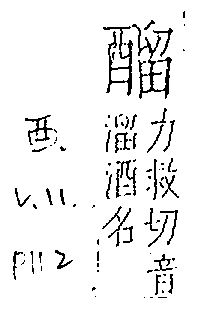 力救切音
溜酒名
酉.
V.11.
P112